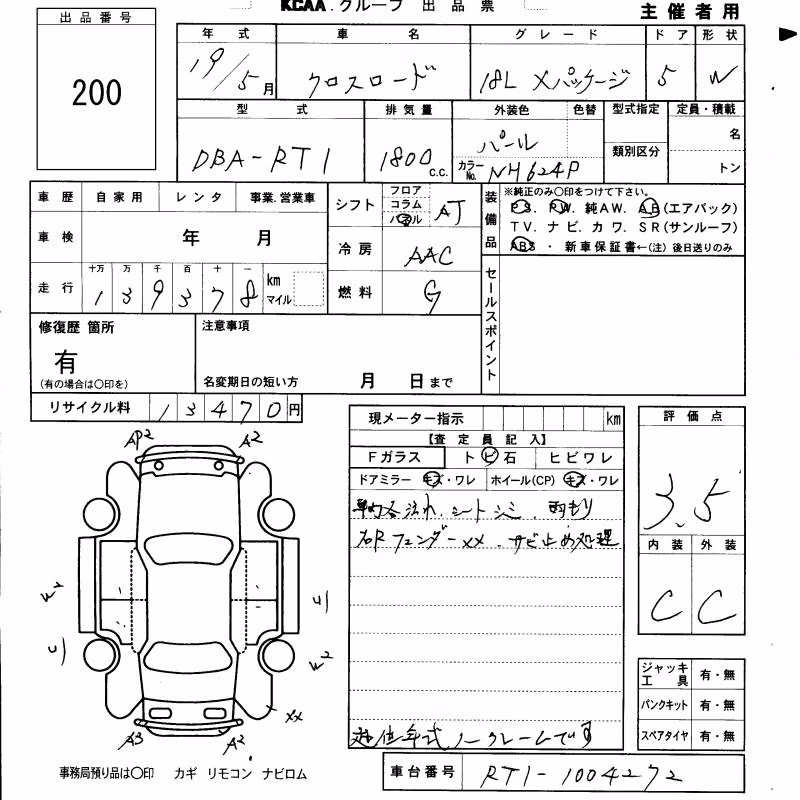 KCAA.グループ 出品票
主催者用
出品番号
200
年式 車名 グレード ドア 形状
19/5月 クロスロード 18L Xパッケージ 5 W
型式 排気量 外装色 色替 型式指定 定員・積載
DBA-RT1 1800 c.c. パール カラーNo. NH624P 類別区分 名 トン
車歴 自家用 レンタ 事業.営業車
シフト フロア コラム パネル AT
装備品 ※純正のみ○印をつけて下さい。
PS. PW. 純AW. AB(エアバック)
TV. ナビ. カワ. SR(サンルーフ)
ABS ・ 新車保証書←(注) 後日送りのみ
車検 年 月
冷房 AAC
走行 十万 万 千 百 十 一
139378 km マイル
燃料 G
セールスポイント
修復歴 箇所
有
(有の場合は○印を)
注意事項
名変期日の短い方 月 日まで
リサイクル料 13470円
現メーター指示 km
評価点
3.5
【査定員記入】
Fガラス トビ石 ヒビワレ
ドアミラー キズ・ワレ ホイール(CP) キズ・ワレ
シートシミ 雨もり
右Rフェンダーxx. サビ止め処理
内装 外装
C C
AP2 A2
xx
A3 A2
ジャッキ工具 有・無
パンクキット 有・無
スペアタイヤ 有・無
年式ノークレームです
事務局預り品は○印 カギ リモコン ナビロム
車台番号 RT1-1004272